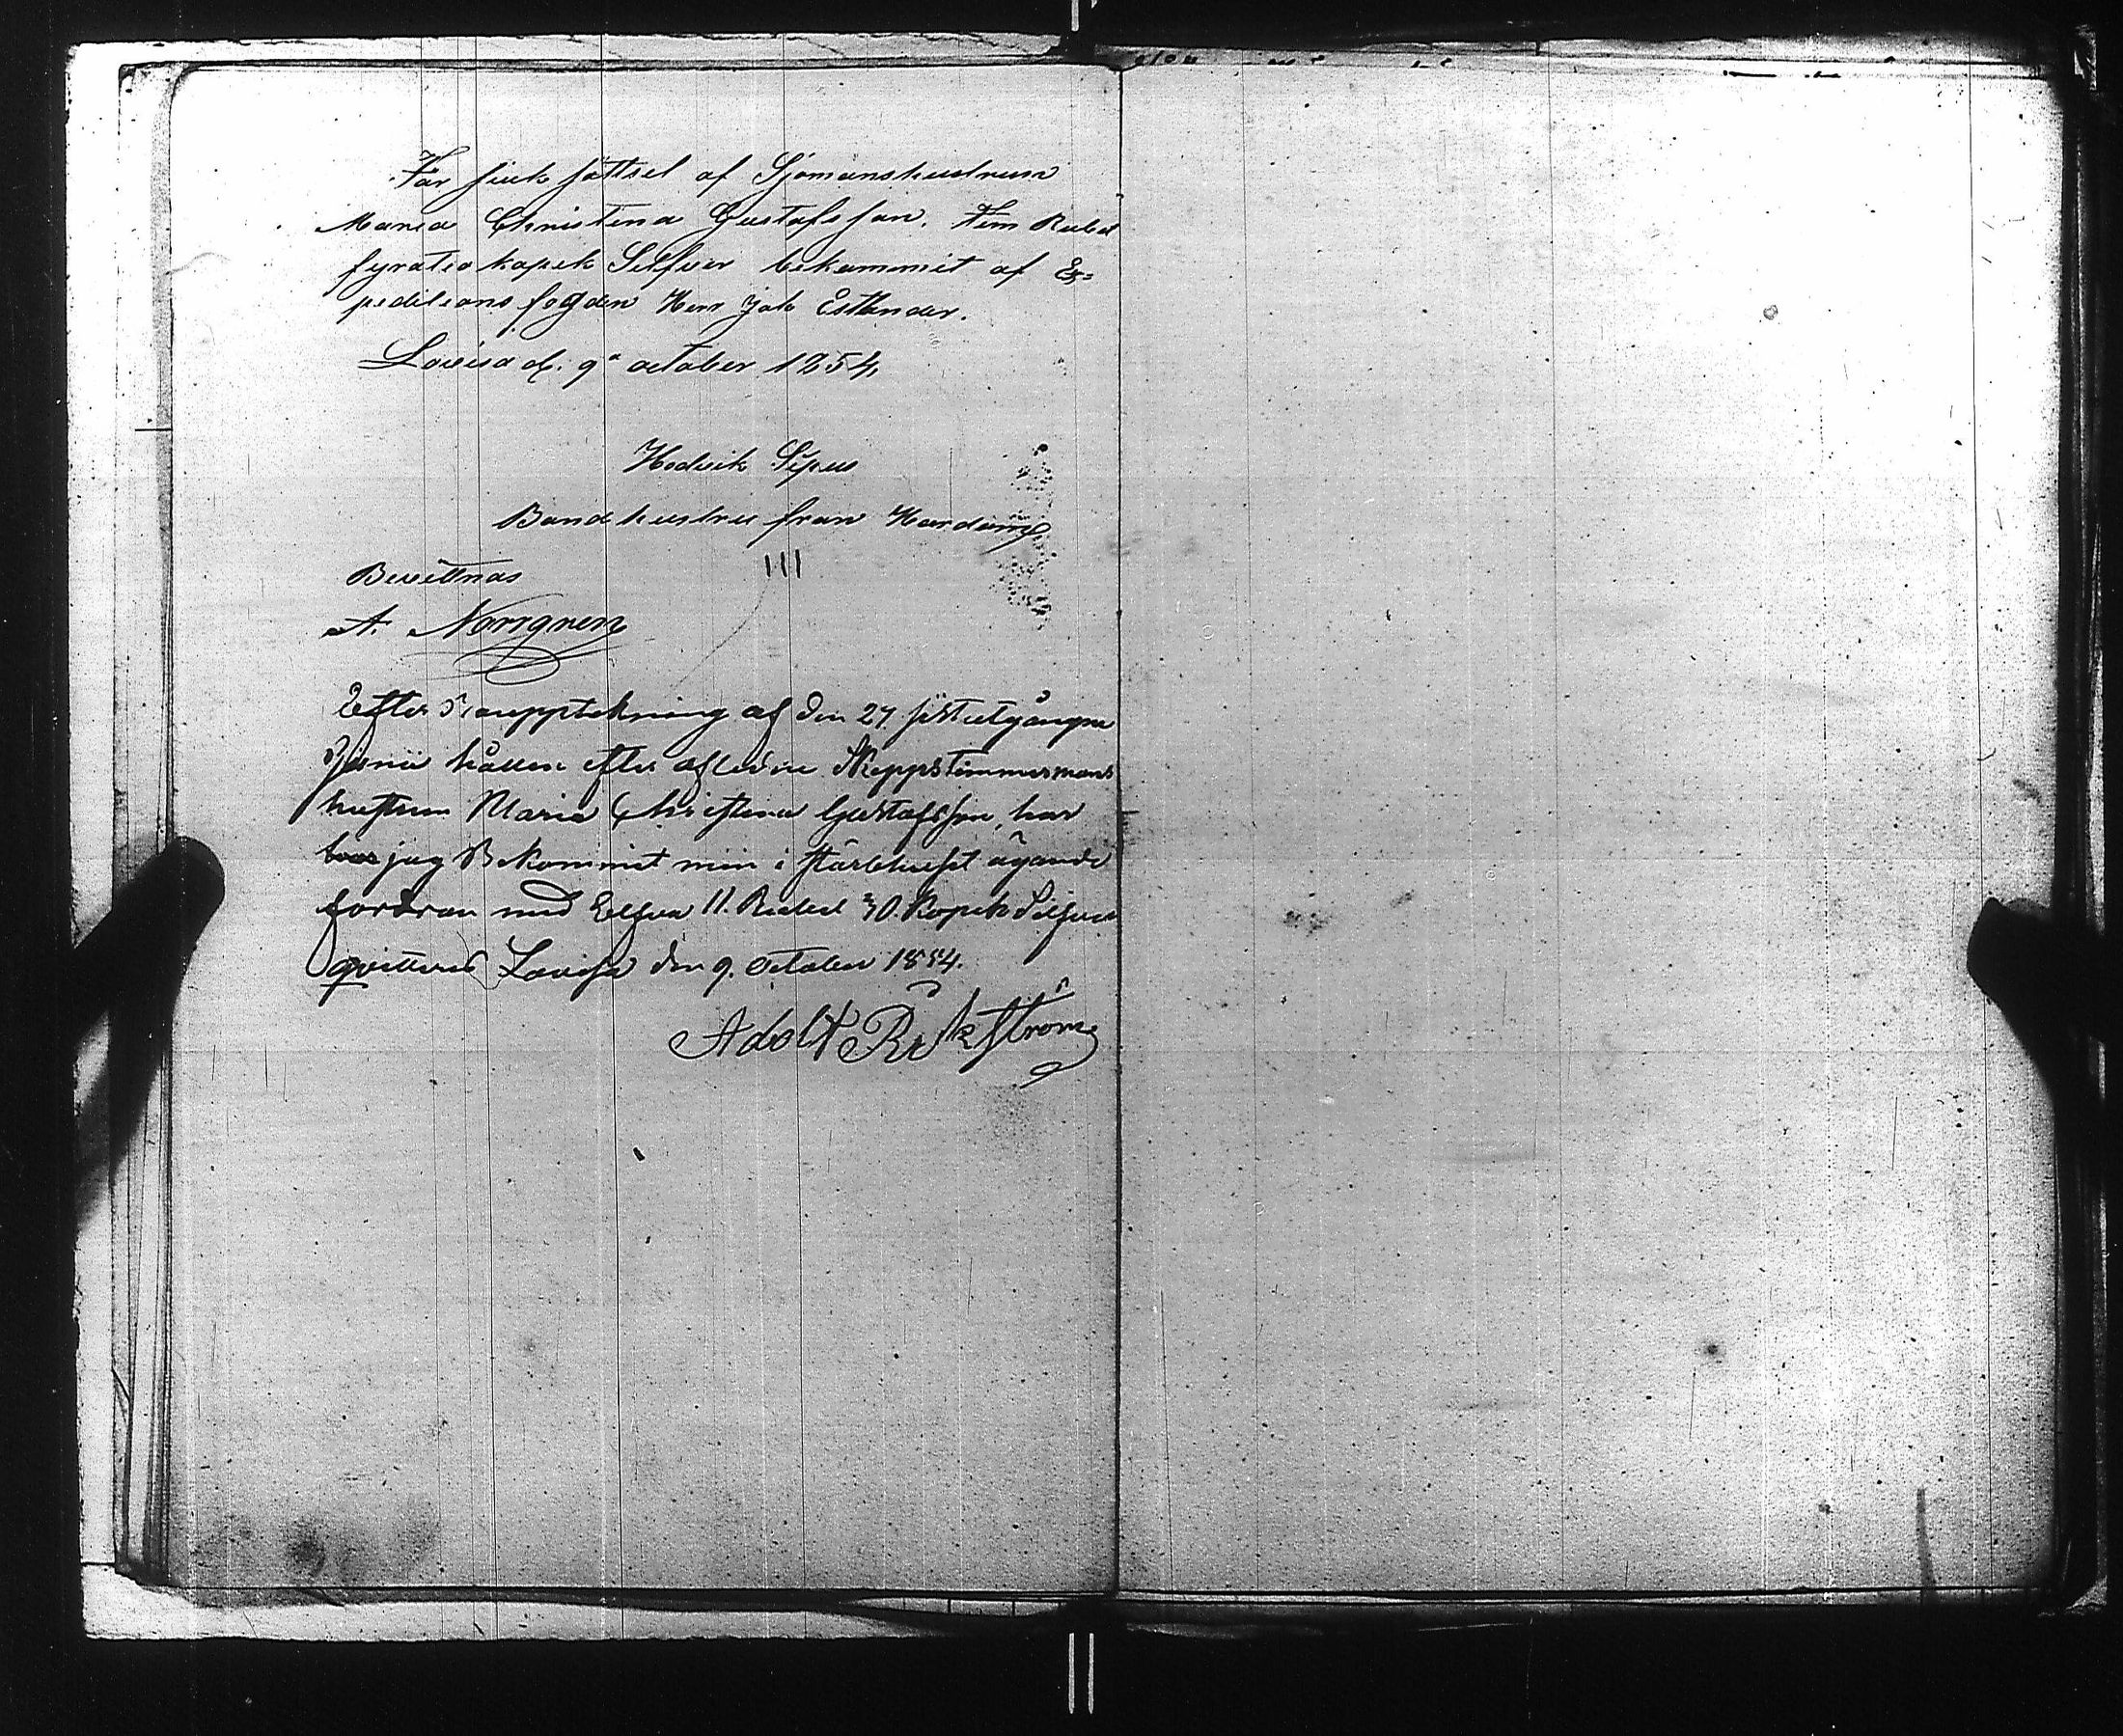 För sjuk sköttsel af Sjömanshustrun
Maria Christina Gustafsson. Fem Rubel
fyratio kopek Silfver bekommit af Ex=
peditions fogden Herr Jak Estlander.
Lovisa d. 9 october 1854,
Hedvik Sipus
Bondhustru från Hardom
III
Bevittnas
A. Norrgren
Efter Bouppteckning af den 27 sistutgångne
Junii hållen efter aflidne Skeppstimmermans
hustrun Maria Christina Gustafsson, har
har jag Bekommit min i stärbhuset ägande
fordran med Elfva 11. Rubel 30. Kopek Silfver
qvitteras Lovisa den 9. October 1854.
Adolf